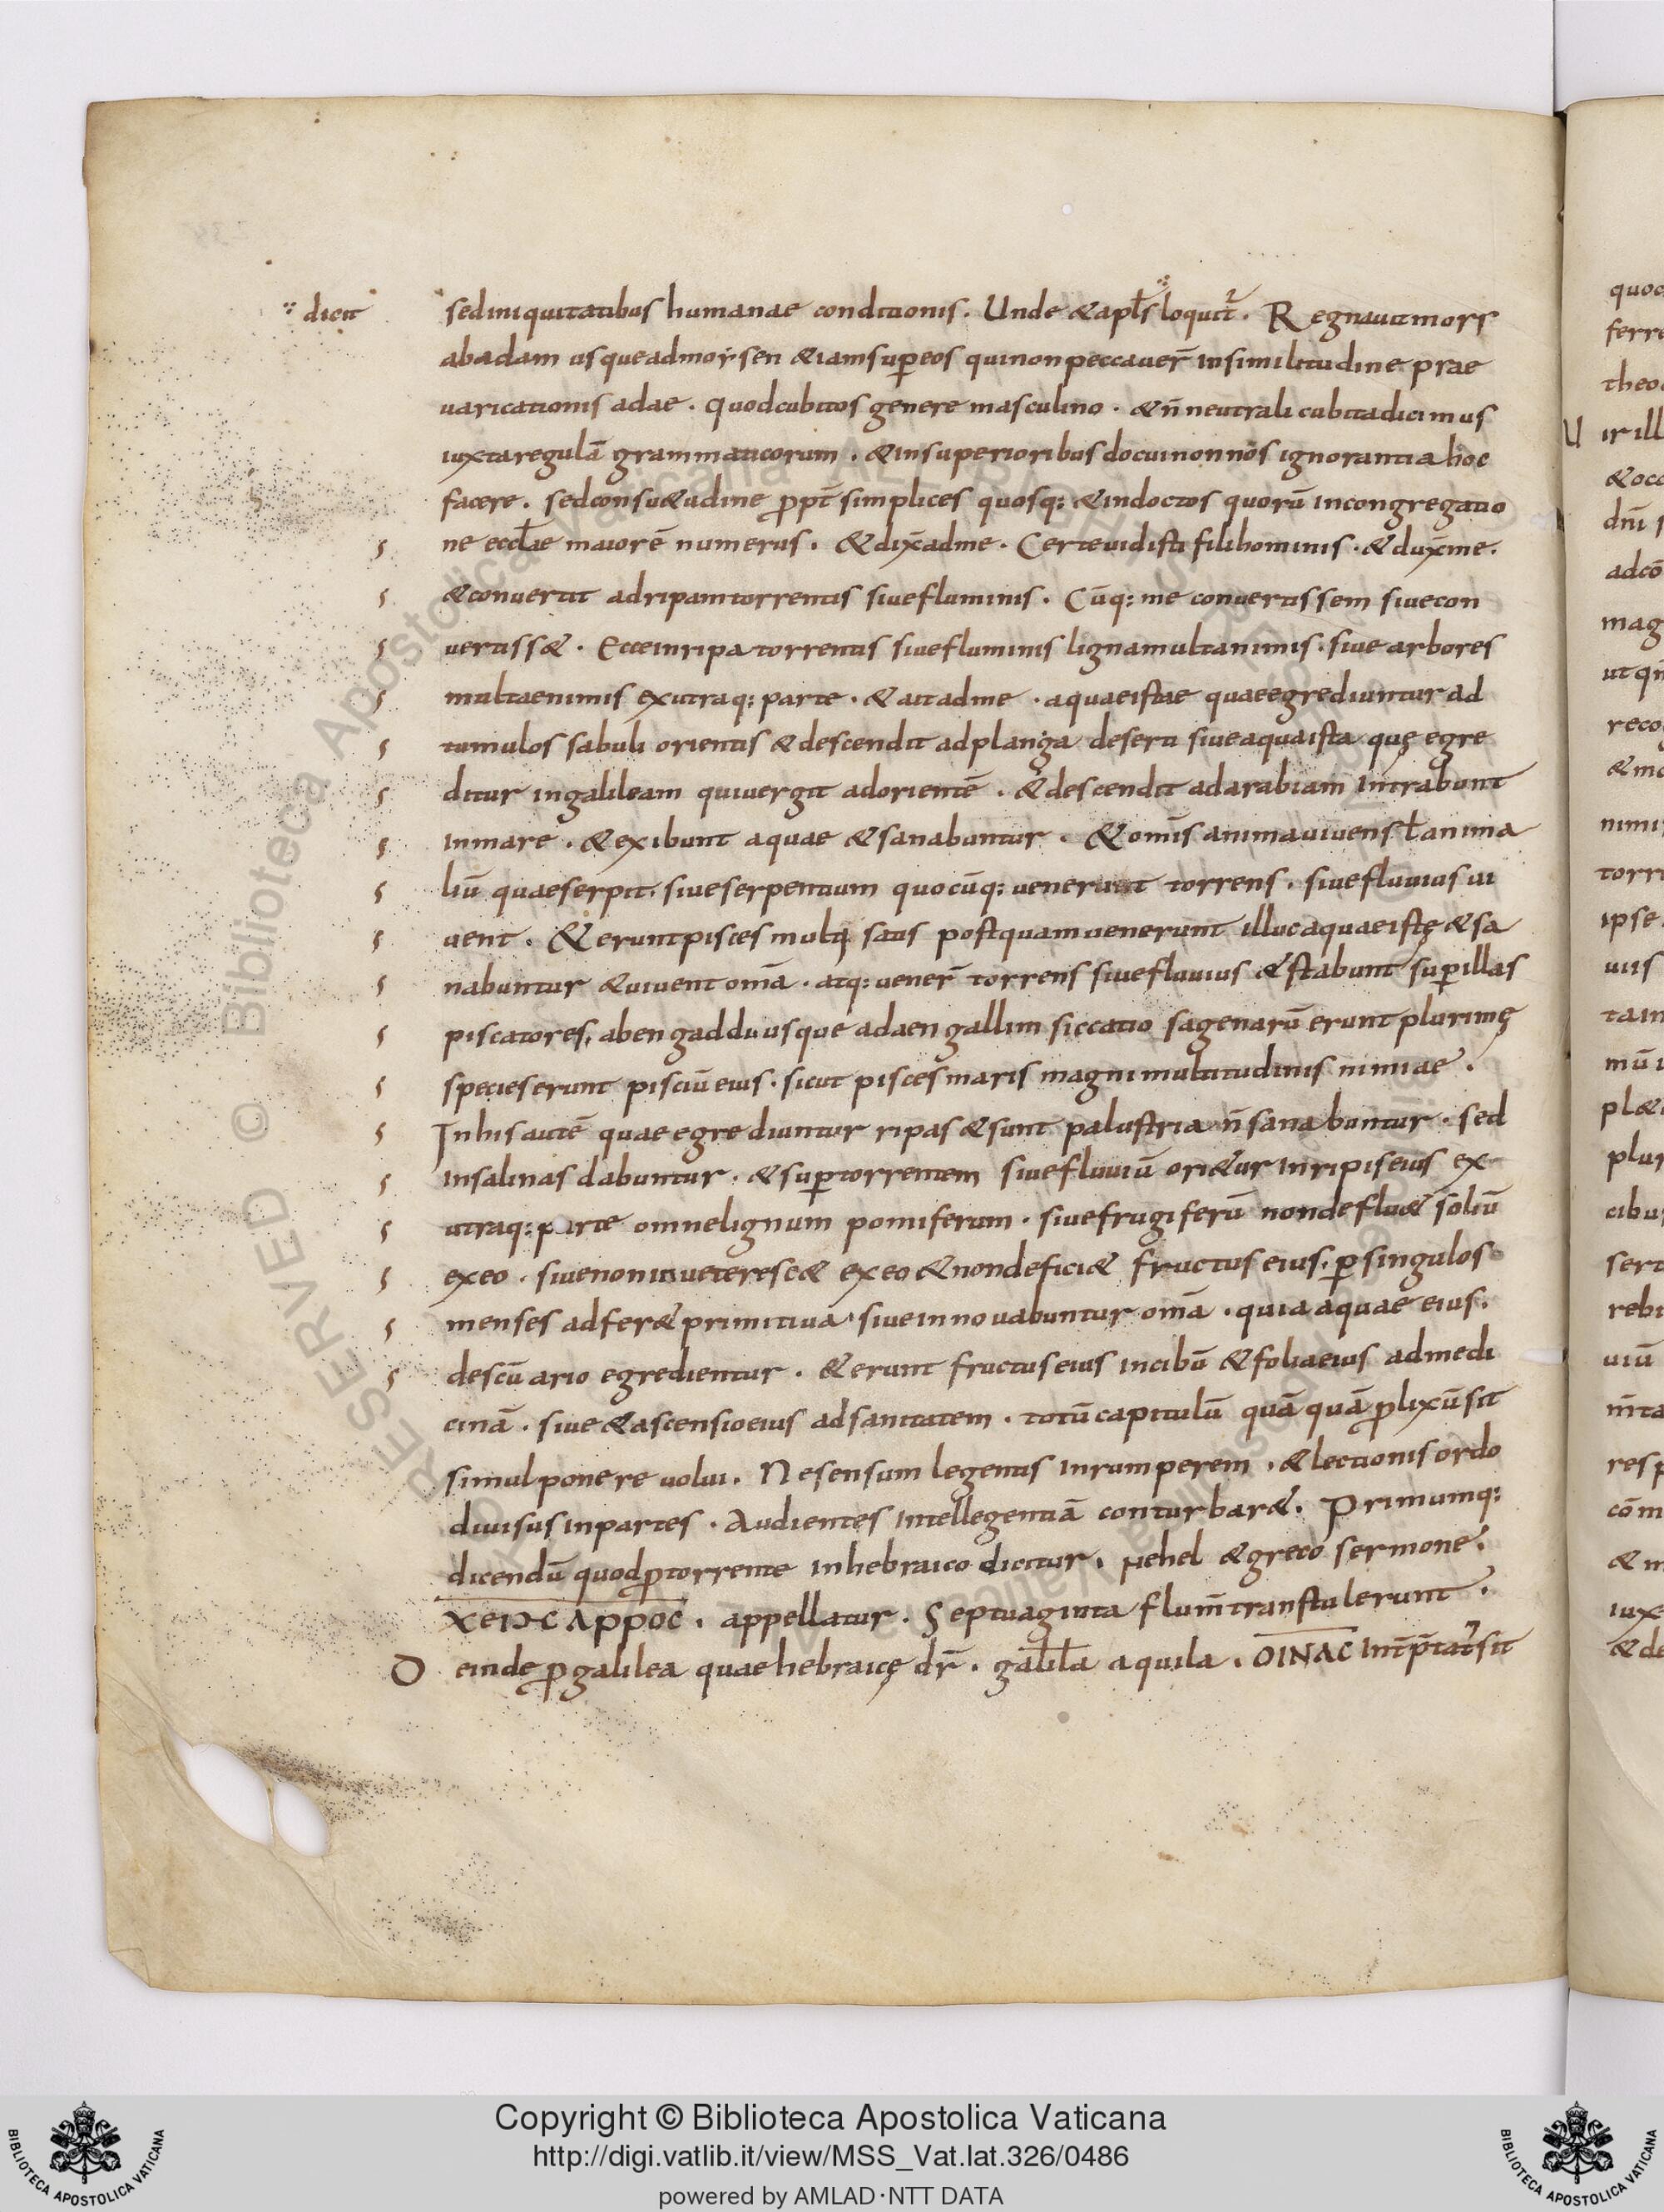 dicit
sed iniquitatibus humanae conditionis. Unde & apłs loquit̄. Regnauit mors
ab adam usque ad morsen &iam sup̄ eos qui non peccauer̄ in similitudine prae
uaricationis adae. quod cubitos genere masculino. & n̄ neutrali cubita dicimus
iuxta regulā grammaticorum. & in superioribus docui non nos ignorantia hoc
facere. sed consu&udine ꝓpt̄ simplices quosq: & indoctos quorū in congregatio
ne eccłae maiorē numerus. & dix̄ ad me. Certe uidisti fili hominis. & dux̄ me.
& conuertit ad ripam torrentis siue fluminis. Cūq: me conuertissem siue con
uertiss&. Ecce in ripa torrentis siue fluminis ligna multa nimis. siue arbores
multae nimis ex utraq: parte. & ait ad me. aquae istae quae egrediuntur ad
tumulos sabuli orientis & descendit ad planga deserti siue aqua ista quę egre
ditur in galileam qui uergit ad orientē. & descendit ad arabiam intrabunt
in mare. & exibunt aquae & sanabuntur. & omīs anima uiuens ł anima
liū quae serpit. siue serpentium quocūq: venerunt torrens. siue fluuius ui
uent. & erunt pisces multi satis postquam uenerunt illuc aquae istę & sa
nabuntur & uiuent omā. atq: uener̄ torrens siue fluuius & stabunt sup̄ illas
piscatores, ab engaddi usque ad aen gallim siccatio sagenarū erunt plurimę
species erunt pisciū eius. sicut pisces maris magni multitudinis nimiae.
In his autē quae egrediuntur ripas & sunt palustria n̄ sanabuntur. sed
in salinas dabuntur. & sup̄ torrentem siue fluuiū ori&ur in ripis eius ex
utraq: parte omne lignum pomiferum. siue frugiferū non deflu& soliū
exeo. siue non inueteresc& ex eo & non defici& fructus eius. ꝑ singulos
menses adfer& primitiua. siue innouabuntur omā. quia aquae eius.
de scūario egredientur. & erunt fructus eius in cibū & folia eius ad medi
cinā. siue & ascensio eius ad sanitatem. totū capitulū quāquā ꝓlixū sit
simul ponere uolui. Ne sensum legentis inrumperem. & lectionis ordo
diuisus in partes. Audientes intellegentiā conturbar&. Primumq:
dicendū quod ꝓ torrente in hebraico dicitur. Nehel & greco sermone.
ΧΕΙΜΑΡΡΟC. appellatur. Septuaginta flum̄ transtulerunt.
Deinde ꝓ galilea quae hebraicę dr̄. galiła aquila. ΟΙΝΑC int̄p̄tat᷑ sit
Copyright © Biblioteca Apostolica Vaticana
http://digi.vatlib.it/view/MSS_Vat.lat.326/0486
powered by AMLAD·NTT DATA
BIBLIOTECA APOSTOLICA VATICANA
BIBLIOTECA APOSTOLICA VATICANA